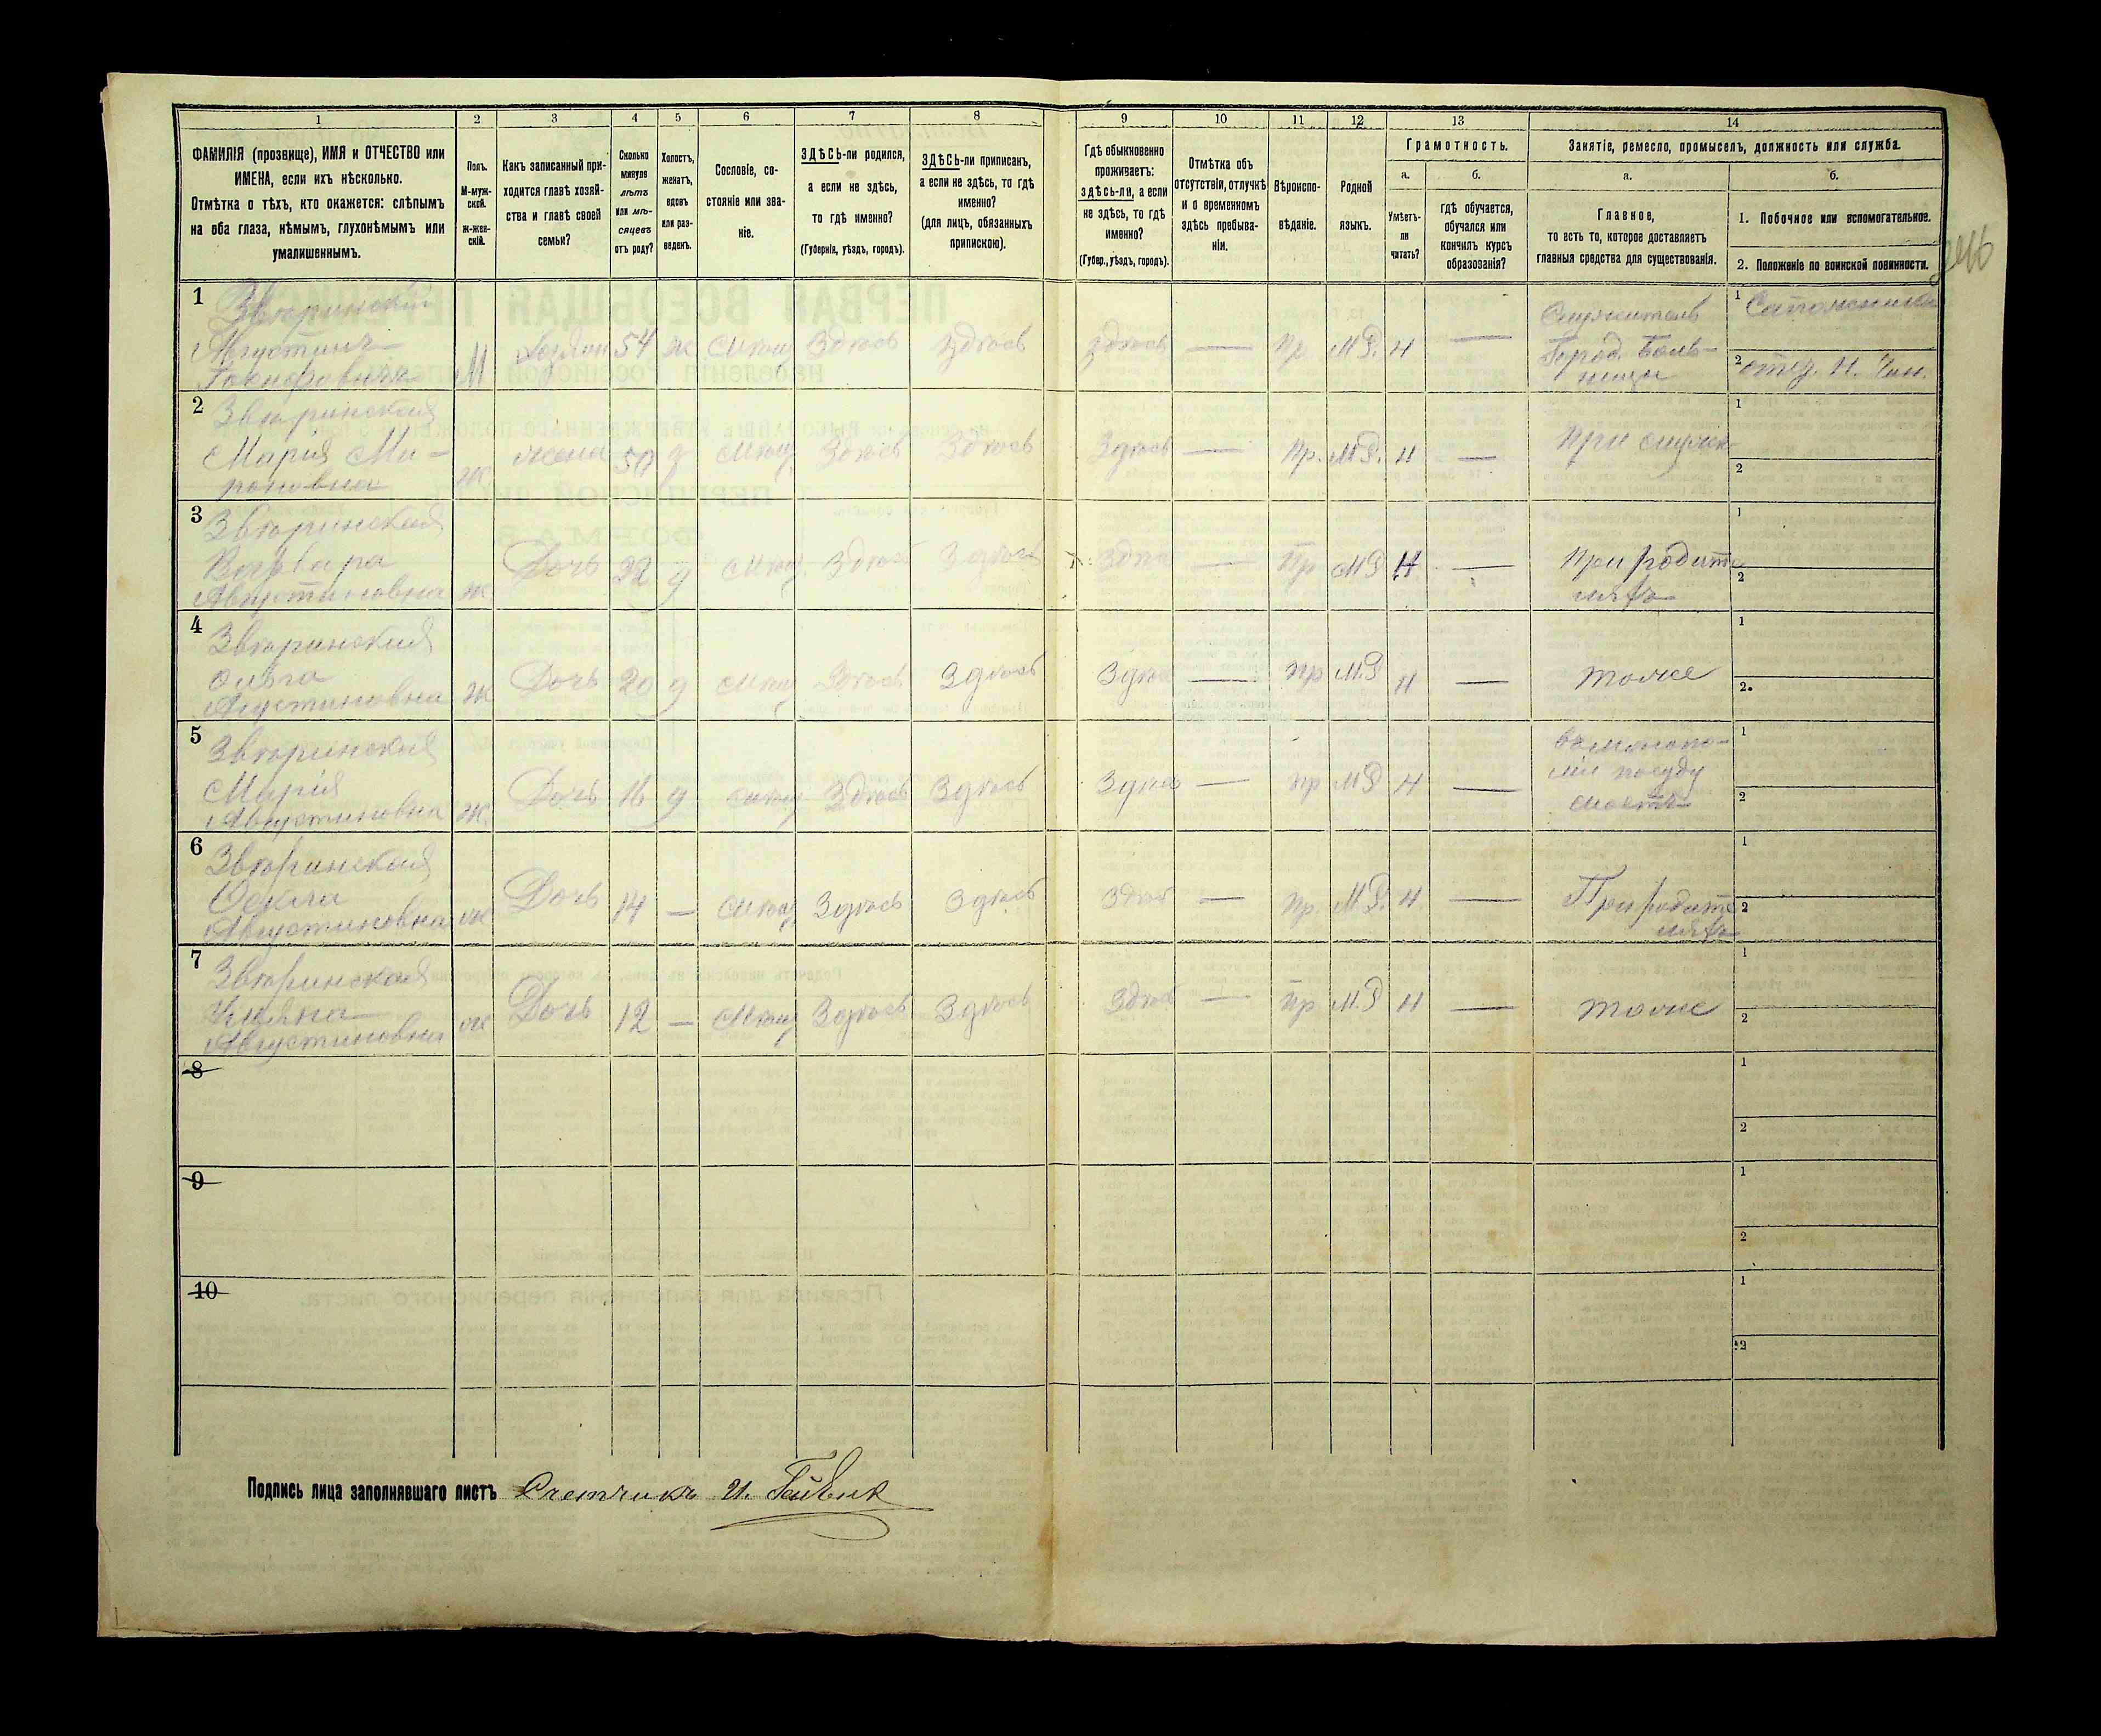 1 2 3 4 5 6 7 8 9 10 11 12 13 14
ФАМИЛІЯ (прозвище), ИМЯ и ОТЧЕСТВО или
ИМЕНА, если ихъ нѣсколько.
Отмѣтка о тѣхъ, кто окажется: слѣпымъ
на оба глаза, нѣмымъ, глухонѣмымъ или
умалишеннымъ.
Полъ.
М-муж-
ской.
ж-жен-
скій.
Какъ записанный при-
ходится главѣ хозяй-
ства и главѣ своей
семьи?
Сколько
минуло
лѣтъ
или мѣ-
сяцевъ
отъ роду?
Холостъ,
женатъ,
вдовъ
или раз-
веденъ.
Сословіе, со-
стояніе или зва-
ніе.
ЗДѢСЬ-ли родился,
а если не здѣсь,
то гдѣ именно?
(Губернія, уѣздъ, городъ).
ЗДѢСЬ-ли приписанъ,
а если не здѣсь, то гдѣ
именно?
(для лицъ, обязанныхъ
припискою).
Гдѣ обыкновенно
проживаетъ:
здѣсь-ли, а если
не здѣсь, то гдѣ
именно?
(Губер., уѣздъ, городъ).
Отмѣтка объ
отсутствіи, отлучкѣ
и о временномъ
здѣсь пребыва-
ніи.
Вѣроиспо-
вѣданіе.
Родной
языкъ.
Грамотность.
а.
Умѣетъ-
ли
читать?
б.
гдѣ обучается,
обучался или
кончилъ курсъ
образованія?
Занятіе, ремесло, промыселъ, должность или служба.
а.
Главное,
то есть то, которое доставляетъ
главныя средства для существованія.
б.
1. Побочное или вспомогательное.
2. Положеніе по воинской повинности.
1 Звѣринскій
Августинъ
М
54 ж Мѣщ Здѣсь Здѣсь Здѣсь — Пр. М.Р. Н —
Служитель
Город. Боль-
ницы
1 Сапожникъ
2 отст. Н. Чин.
2 Звѣринская
Марія Ми-
роновна
Ж Жена 50 Мѣщ Здѣсь Здѣсь Здѣсь — Пр. М.Р. Н —
При мужѣ
1
2
3 Звѣринская
Варвара
Августиновна
Ж Дочь 22 д Мѣщ. Здѣсь Здѣсь Здѣсь — Пр М.Р Н —
При родите
ляхъ
1
2
4 Звѣринская
Ольга
Агустиновна
Ж Дочь 20 д Мѣщ Здѣсь Здѣсь Здѣсь — Пр М.Р Н —
тоже
1
2
5 Звѣринская
Марія
Августиновна
Ж. Дочь 16 д Мѣщ Здѣсь Здѣсь Здѣсь — Пр М.Р Н —
Въ монопо-
ліи посуду
моетъ
1
2
6 Звѣринская
Ѳекла
Августиновна
Ж Дочь 14 — Мѣщ Здѣсь Здѣсь Здѣсь — Пр. М.Р. Н. —
При родите
ляхъ
1
2
7 Звѣринская
Августиновна
Ж Дочь 12 — Мѣщ Здѣсь Здѣсь Здѣсь — Пр М.Р Н —
тоже
1
2
8
1
2
9
1
2
10
1
2
Подпись лица заполнявшаго листъ Счетчикъ И.